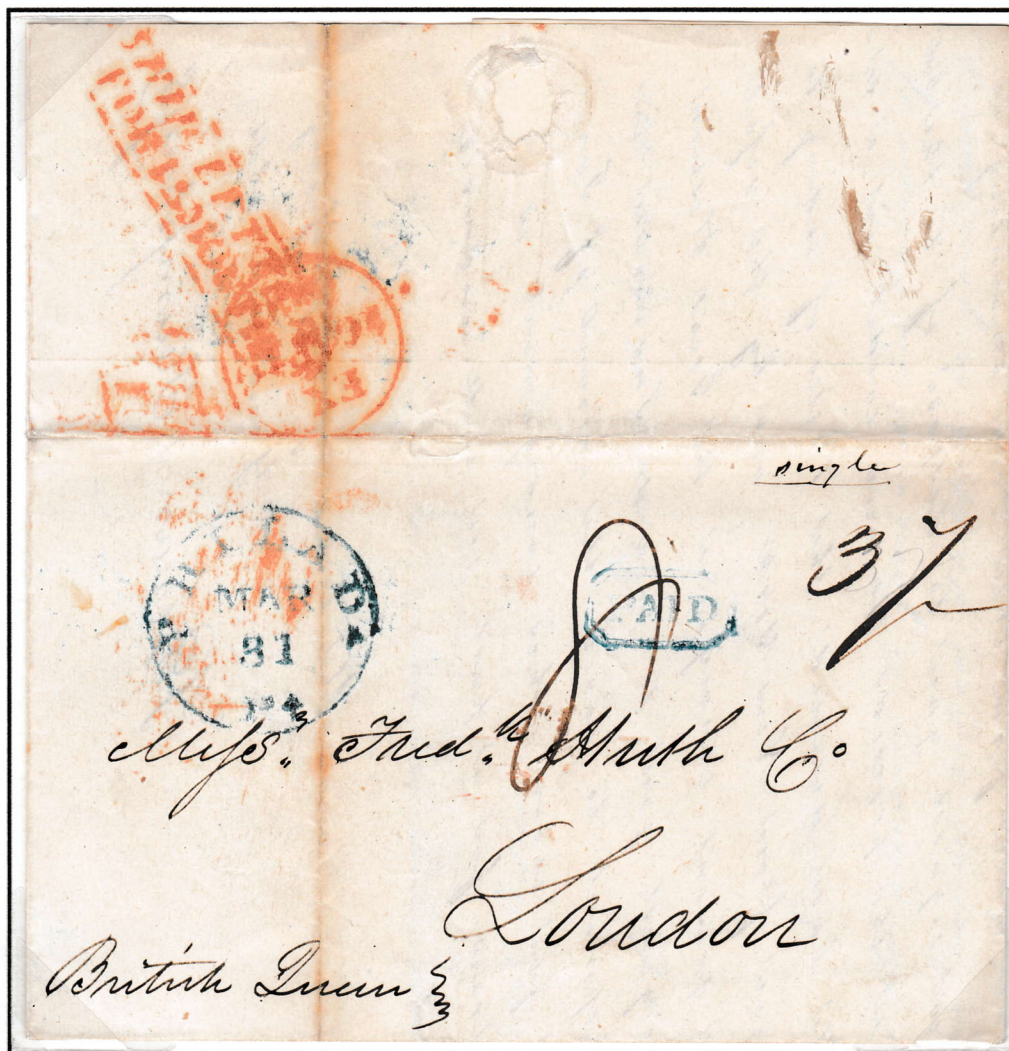 SHIP LETTER
single
37
8
PHILADA
MAR
31
PAID
Mess.rs Fred.k Huth Co
London
British Queen